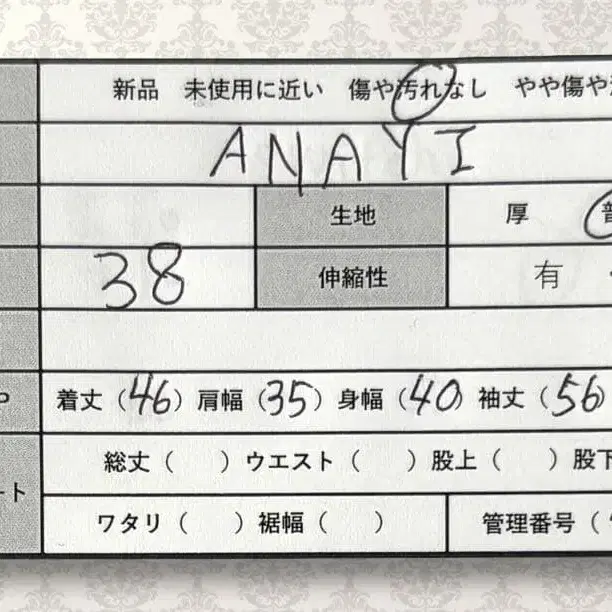 新品 未使用に近い 傷や汚れなし やや傷や
ANAYI
生地 厚 普
38 伸縮性 有
P 着丈（46）肩幅（35）身幅（40）袖丈（56）
総丈（ ）ウエスト（ ）股上（ ）股下
ート
ワタリ（ ）裾幅（ ） 管理番号（